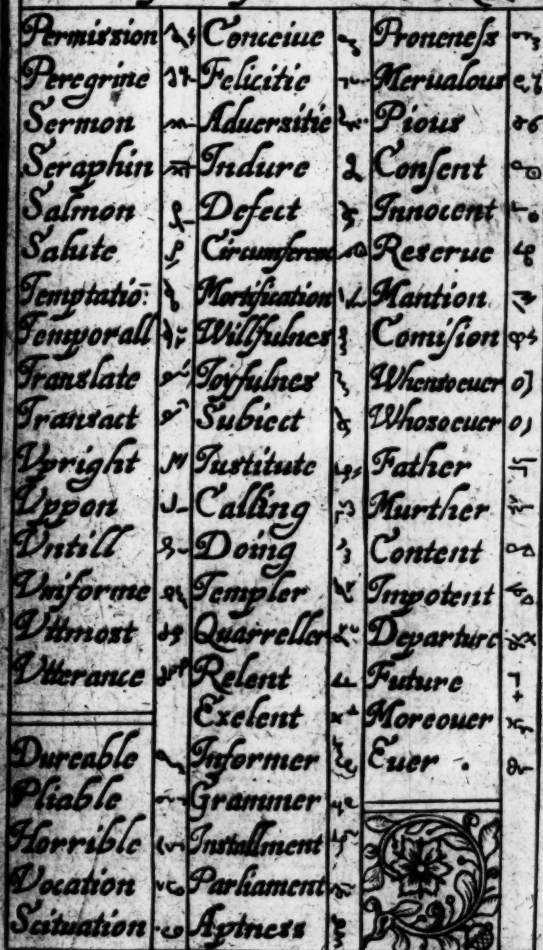 Permission
Peregrine
Sermon
Seraphin
Salmon
Salute
Temptatiō:
Temporall
Translate
Transact
Vpright
Vppon
Vntill
Vniforme
Vttmost
Vtterance
Dureable
Pliable
Horrible
Vocation
Scituation
Conceiue
Felicitie
Aduersitie
Indure
Defect
Circumferenc
Mortification
Willfulnes
Ioyfulnes
Subiect
Iustitute
Calling
Doing
Templer
Quarreller
Relent
Exelent
Informer
Grammer
Installment
Parliament
Aptness
Proneneſs
Merualous
Pious
Conſent
Innocent
Reserue
Mantion
Comiſion
Whensoeuer
Whosoeuer
Father
Murther
Content
Impotent
Departure
Future
Moreouer
Euer .